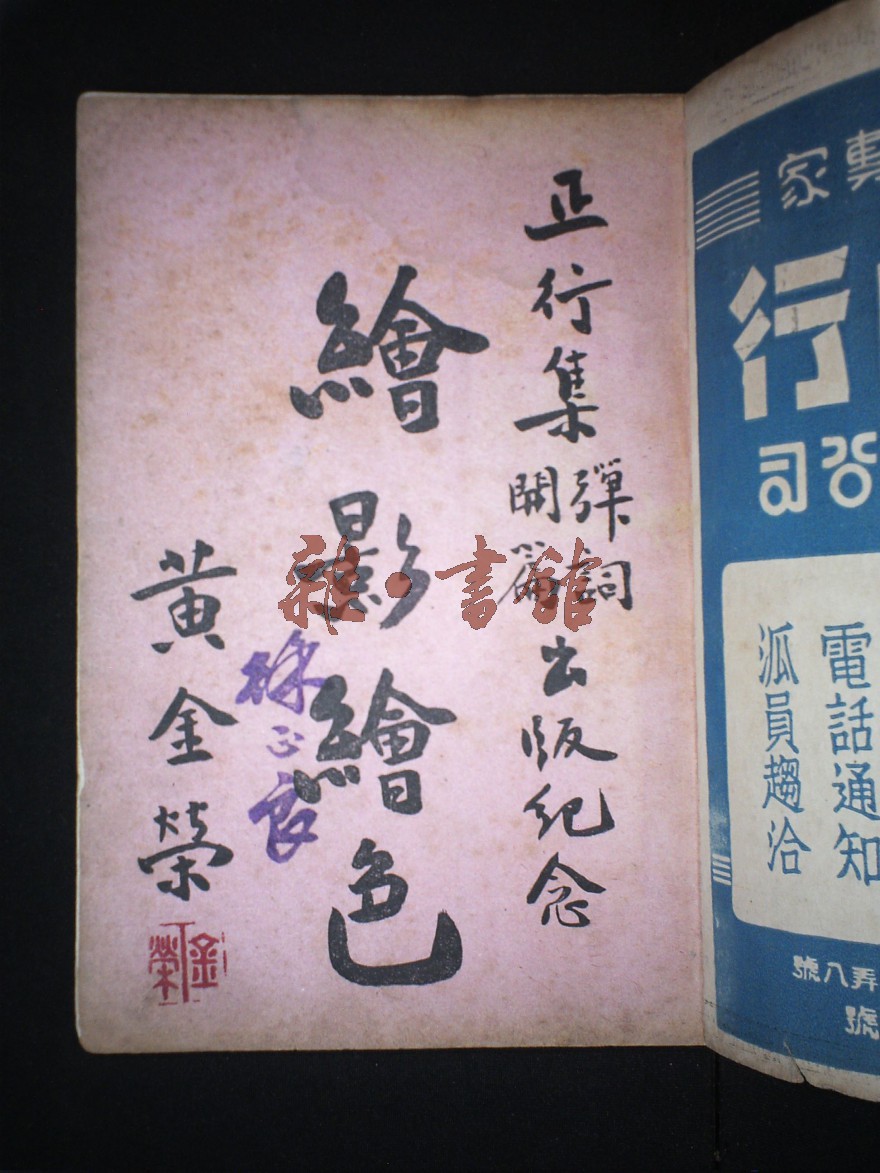 正行集彈詞開篇出版紀念
繪影繪色
黃金榮
金榮
徐正良
雜·書館
專家
行
公司
電話通知
派員趨洽
弄八號
號